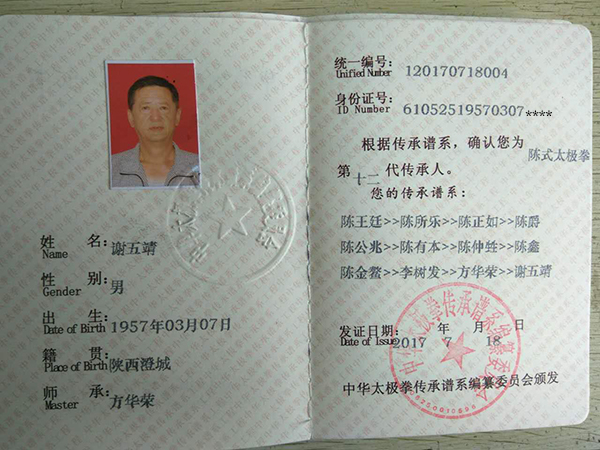 姓 名：谢五靖
Name
性 别：男
Gender
出 生
Date of Birth 1957年03月07日
籍 贯：陕西澄城
Place of Birth
师 承：方华荣
Master
统一编号：120170718004
Unified Number
身份证号：61052519570307****
ID Number
根据传承谱系，确认您为陈式太极拳
第十一代传承人。
您的传承谱系：
陈王廷>>陈所乐>>陈正如>>陈爵
陈公兆>>陈有本>>陈仲甡>>陈鑫
陈金鳌>>李树发>>方华荣>>谢五靖
发证日期： 年 月 日
Date of Issue 2017 7 18
中华太极拳传承谱系编纂委员会颁发